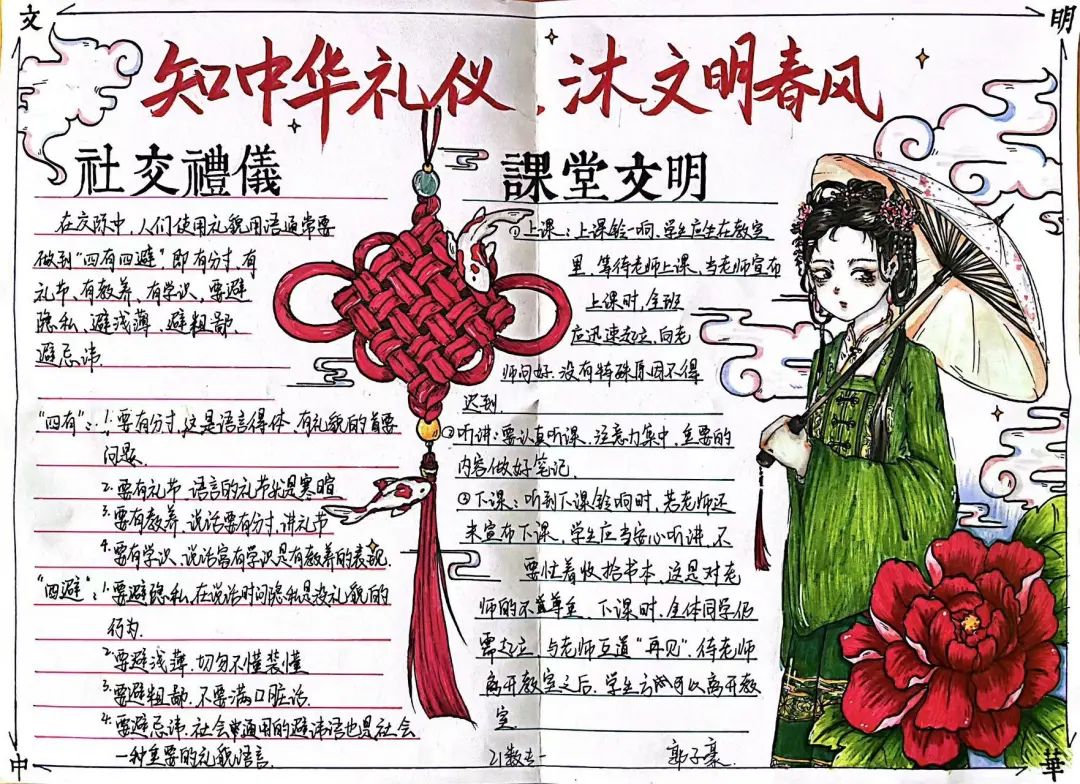 文
明
知中华礼仪、沐文明春风
社交禮儀
在交际中,人们使用礼貌用语通常要
做到"四有四避",即有分寸、有
礼节、有教养、有学识,要避
隐私、避浅薄、避粗鄙、
避忌讳.
"四有":1.要有分寸,这是语言得体、有礼貌的首要
问题.
2.要有礼节,语言的礼节就是寒暄
3.要有教养,说话要有分寸,讲礼节
4.要有学识,说话富有学识是有教养的表现.
"四避":1.要避隐私,在说话时问隐私是没礼貌的
行为.
2.要避浅薄,切勿不懂装懂
3.要避粗鄙,不要满口脏话.
4.要避忌讳,社会通用的避讳语也是社会
一种重要的礼貌语言.
課堂文明
①上课:上课铃一响,学生应坐在教室
里,等待老师上课,当老师宣布
上课时,全班
应迅速起立,向老
师问好.没有特殊原因不得
迟到.
②听讲:要认真听课,注意力集中,重要的
内容做好笔记.
③下课:听到下课铃响时,若老师还
未宣布下课,学生应当安心听讲,不
要忙着收拾书本,这是对老
师的不尊重.下课时,全体同学仍
需起立,与老师互道"再见".待老师
离开教室之后,学生方可以离开教
室
21数专一
郭子豪.
中
華